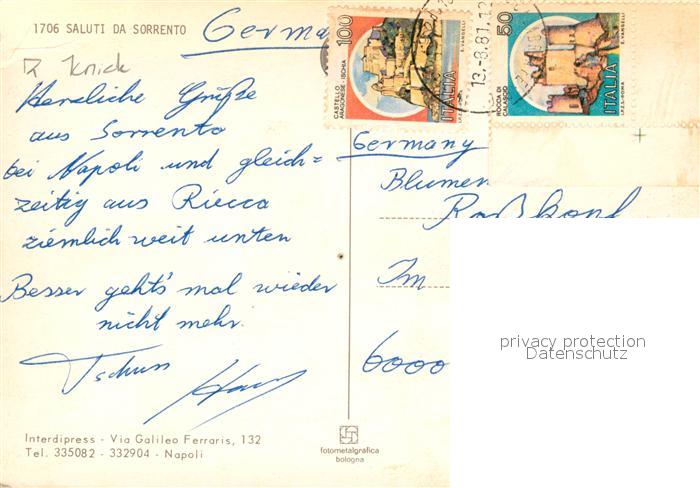 1706 SALUTI DA SORRENTO
Germa
Knick
Herzliche Grüße
aus Sorrento
bei Napoli und gleich=
zeitig aus Riccca
ziemlich weit unten
Besser geht's mal wieder
nicht mehr.
Tschuss
Interdipress - Via Galileo Ferraris, 132
Tel. 335082 - 332904 - Napoli
fotometalgrafica
bologna
100
CASTELLO
ARAGONESE - ISCHIA
ITALIA
E. VANGELLI
13.-8.81.12
50
ROCCA DI
CALASCIO
ITALIA
I.P.Z.S. - ROMA
E. VANGELLI
Germany
Blumen
Im
6000
privacy protection
Datenschutz